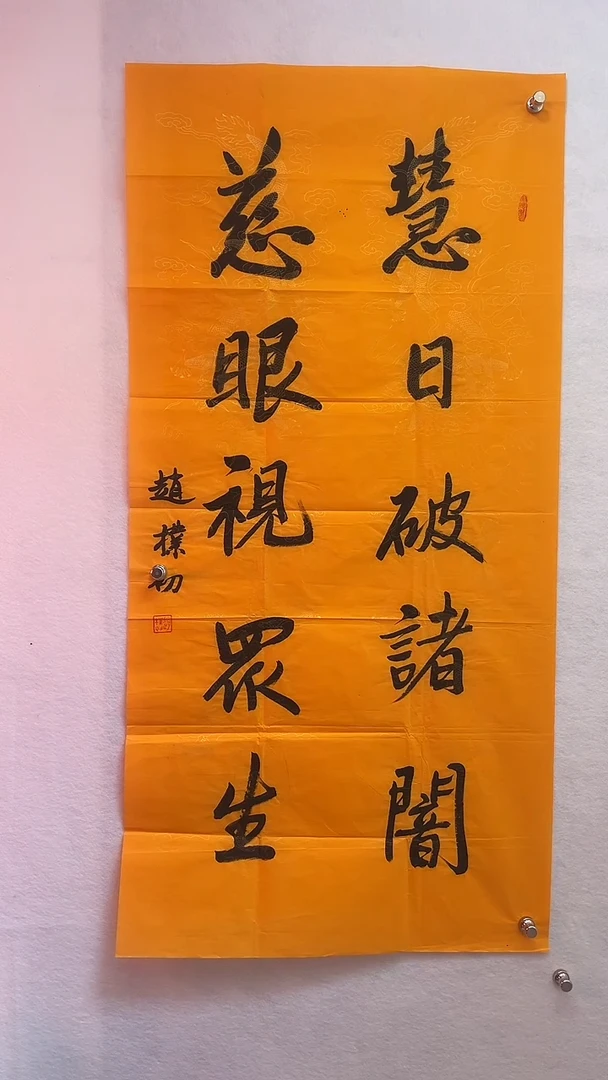 慧日破諸闇
慈眼視眾生
趙樸初